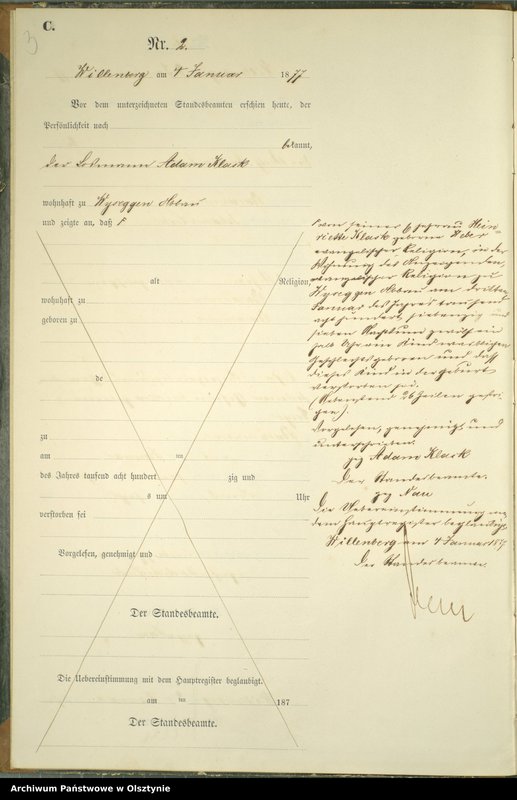 C.
3
Nr. 2.
Willenberg am 4 Januar 1877
Vor dem unterzeichneten Standesbeamten erschien heute, der
Persönlichkeit nach
bekannt,
der Losmann Adam Klask
wohnhaft zu Wyseggen Abbau
und zeigte an, daß
von seiner Ehefrau Hein-
riette Klask geborene
evangelischer Religion, in der
Wohnung des Anzeigenden,
evangelischer Religion zu
Wyseggen Abbau am dritten
Januar des Jahres tausend
achthundert siebenzig und
sieben Nachmittags
halb Uhr ein Kind weiblichen
Geschlechts geboren und daß
dieses Kind in der Geburt
verstorben sei.
(Vorstehend 26 Zeilen gestri-
chen).
Vorgelesen, genehmigt und
unterschrieben
gez Adam Klask
Der Standesbeamte.
gez Nau
Die Uebereinstimmung mit
dem Hauptregister beglaubigt
Willenberg am 4 Januar 187
Der Standesbeamte.
Nau
alt Religion
wohnhaft zu
geboren zu
de
zu
am ten
des Jahres tausend acht hundert zig und
s um Uhr
verstorben sei
Vorgelesen, genehmigt und
Der Standesbeamte.
Die Uebereinstimmung mit dem Hauptregister beglaubigt.
am ten 187
Der Standesbeamte.
Archiwum Państwowe w Olsztynie